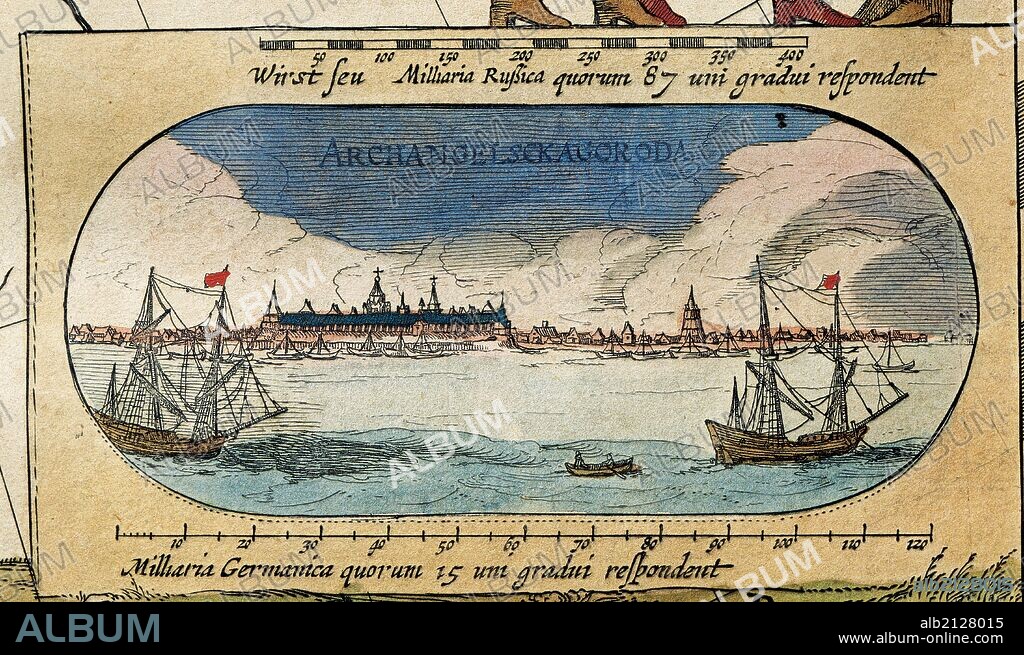 50 100 150 200 250 300 350 400
Wirst seu Milliaria Russica quorum 87 uni gradui respondent
ARCHANGELSCKAUGRODA
10 20 30 40 50 60 70 80 90 100 110 120
Milliaria Germanica quorum 15 uni gradui respondent
ALBUM
alb2128015
www.album-online.com